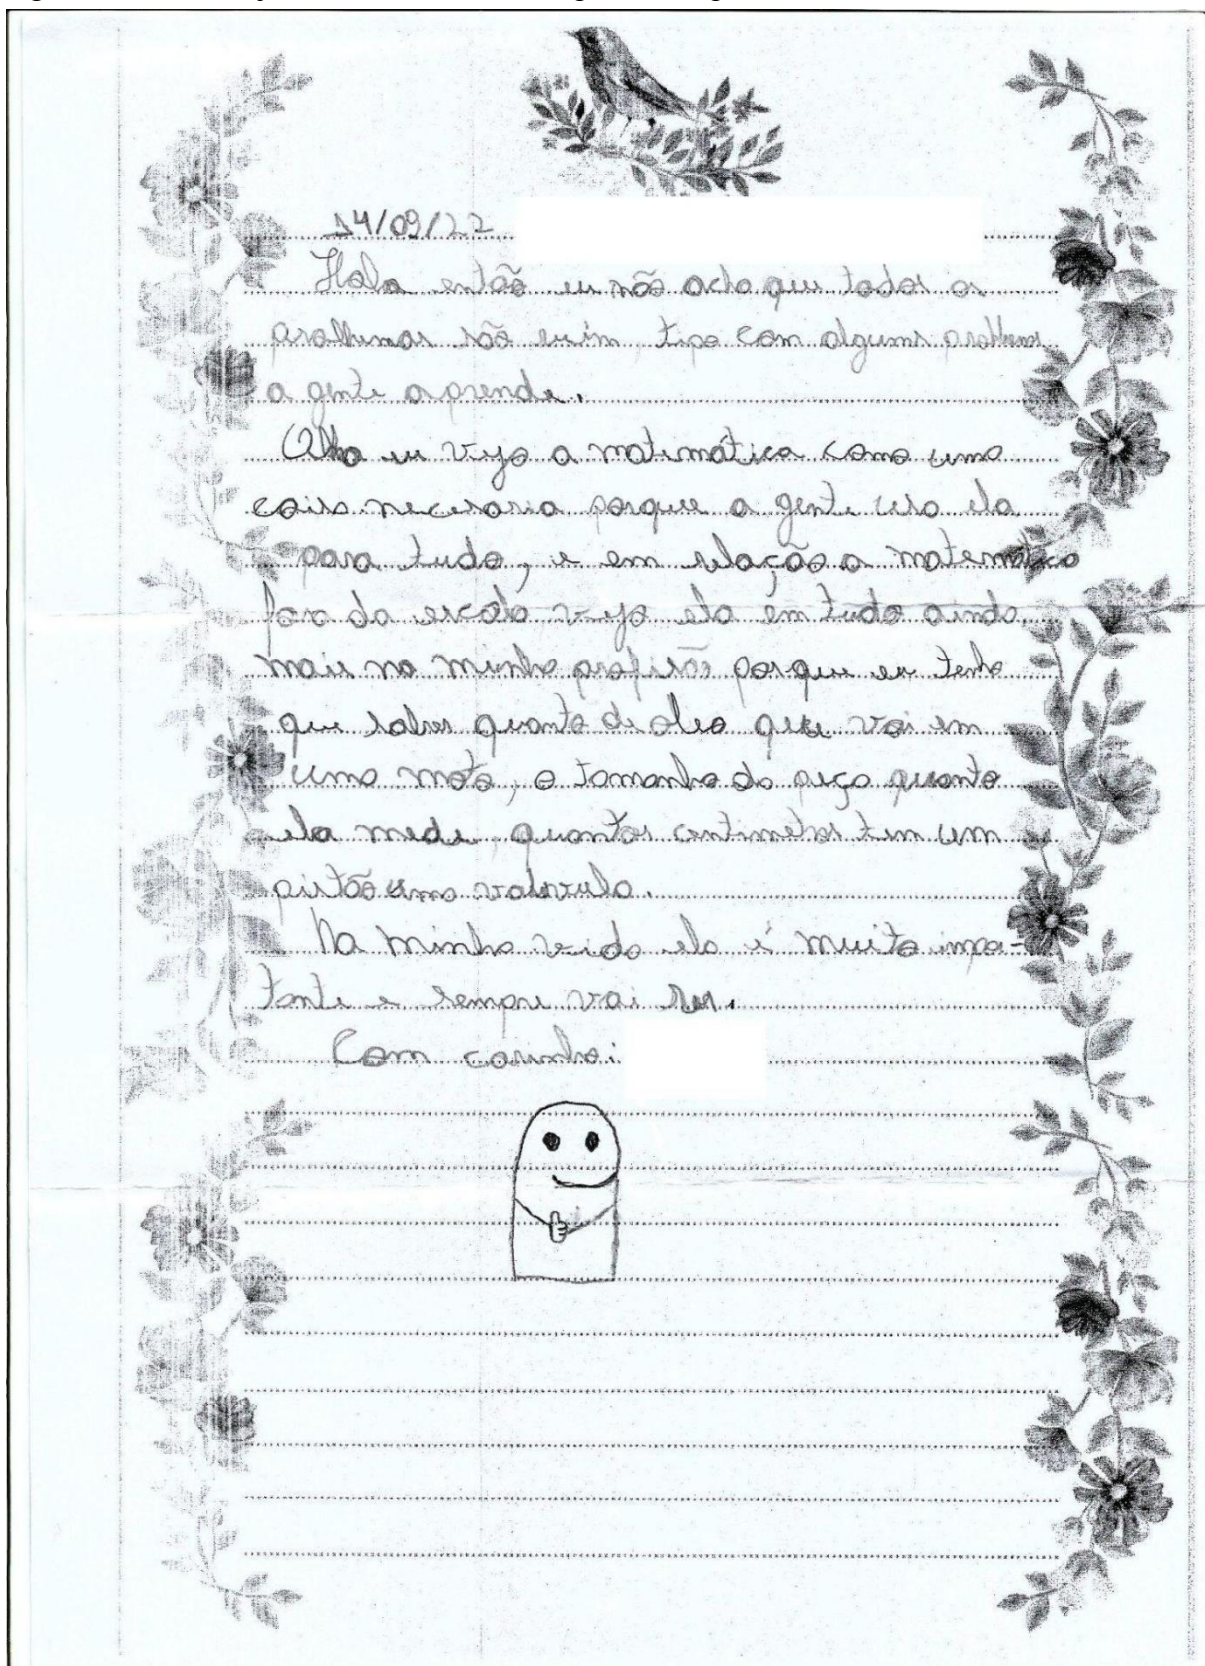 14/09/22
Hola então eu não acho que todos os
problemas são ruim, tipo com alguns problemas
a gente aprende.
Olha eu vejo a matemática como uma
coisa necesaria porque a gente usa ela
para tudo, e em relação a matemática
fora da escola vejo ela em tudo ainda
mais na minha profisão porque eu tenho
que saber quanto de oleo que vai em
uma moto, o tamanho da peça quanto
ela mede, quantos centimetros tem um
pistão uma valvula.
Na minha vida ela é muito impo-
tante e sempre vai ser.
Com carinho: